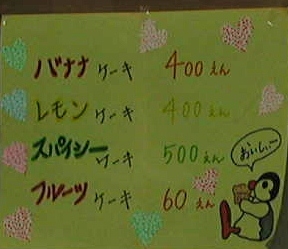 バナナケーキ 400えん
レモンケーキ 400えん
スパイシーケーキ 500えん
フルーツケーキ 60えん
おいしぃー